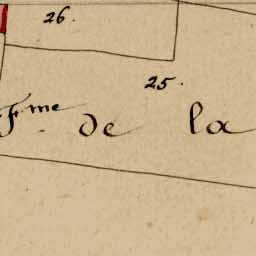 26.
25.
Fme de la